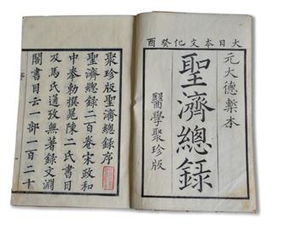 大日本文化癸酉
元大德槧本
聖濟總錄
醫學聚珍版
聚珍版聖濟總錄序
聖濟總錄二百卷宋政和
中奉勅撰晁陳二氏書目
及馬氏通攷無著錄文淵
閣書目云一部一百二十
序